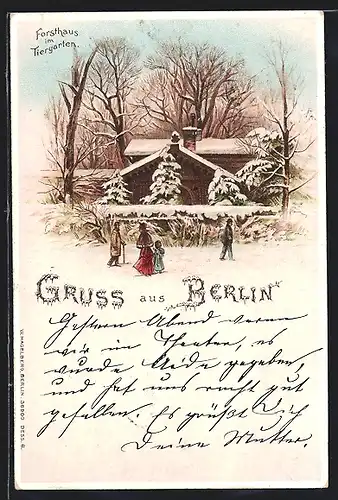 Forsthaus
im
Tiergarten.
GRUSS aus BERLIN
Gestern Abend waren
wir im Theater, es
wurde gegeben,
und hat uns recht gut
gefallen. Es grüßt Dich
Deine Mutter.
W. HAGELBERG, BERLIN.